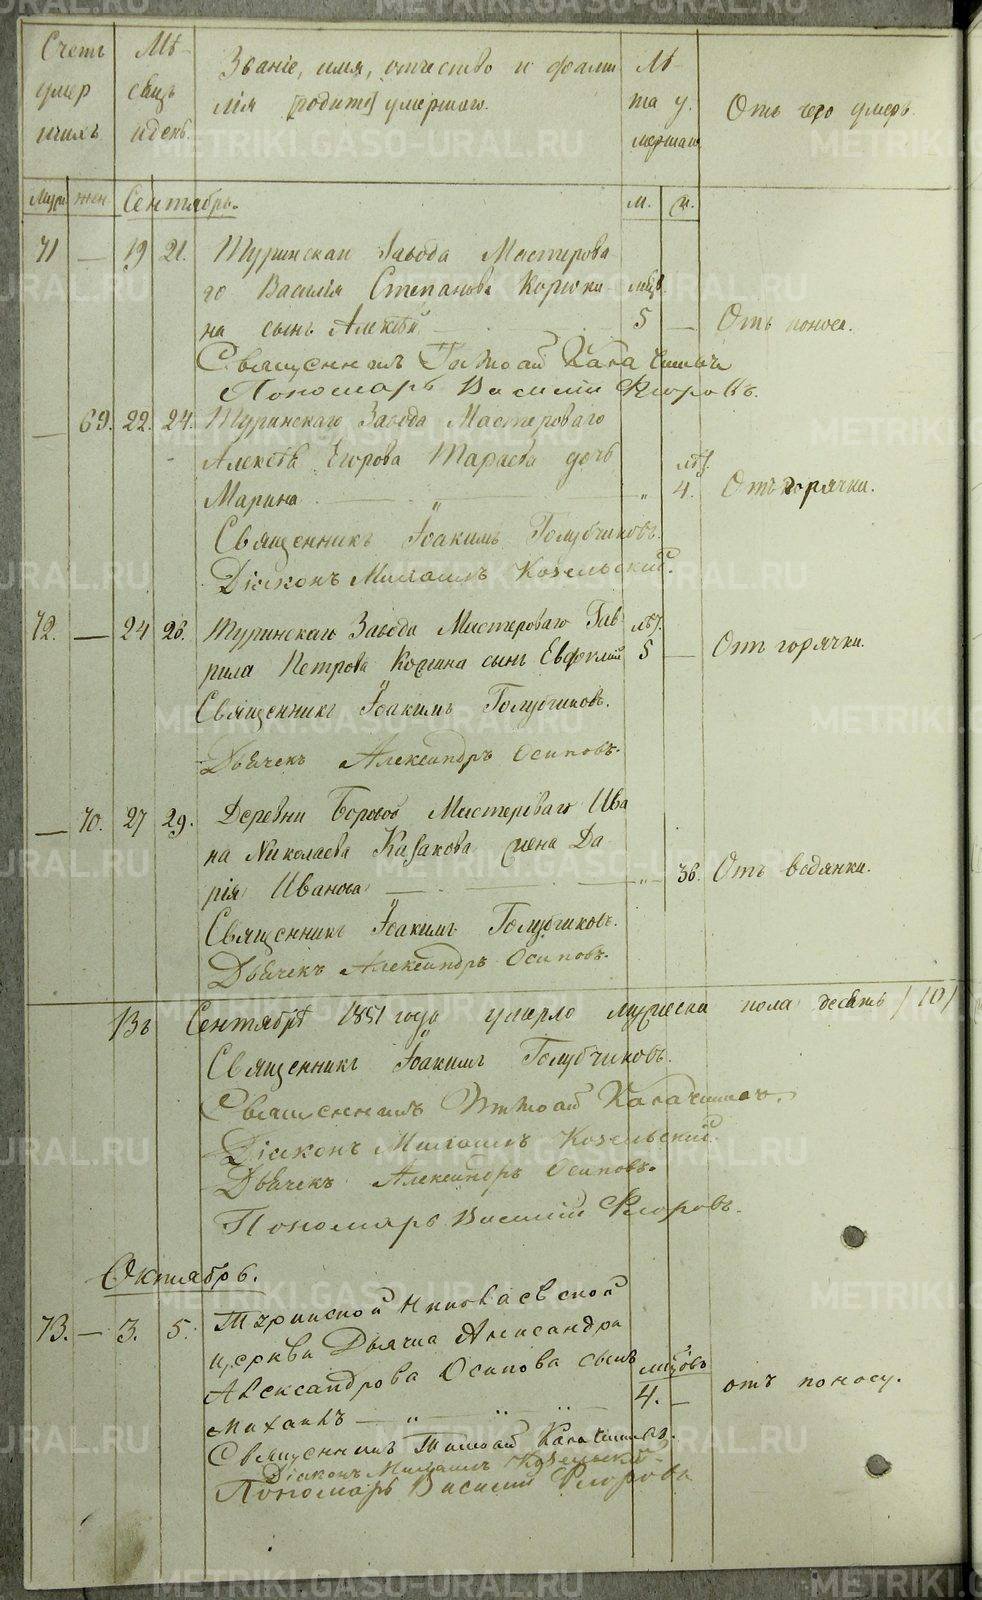 Счетъ умер шихъ
Мѣ- сяцъ и день.
Званіе, имя, отчество и фами
лія [родит] умершаго.
Лѣ- та у. мершаго
Отъ чего умеръ.
Муж. жен. Сентябрь. м. ж.
71 — 19 21. Туринскаго Завода Мастерова
го Василія Степанова Корюки мѣсц.
на сынъ Алексѣй 5 — Отъ поноса.
Священникъ
Пономарь Василій
— 69. 22. 24. Туринскаго Завода Мастероваго
Алексѣя Егорова Тараева дочь лѣт.
Марина — „ — „ 4. Отъ горячки.
Священникъ Іоакимъ Голубчиковъ.
Діаконъ Михаилъ Козельскій.
72. — 24 26. Туринскаго Завода Мастероваго Гав лѣт.
рила Петрова сынъ 5 — Отъ горячки.
Священникъ Іоакимъ Голубчиковъ.
Дьячекъ Александръ Осиповъ.
— 70. 27 29. Деревни Мастероваго Ива
на Николаева Казакова жена Да
рія Иванова — „ — 36. Отъ водянки.
Священникъ Іоакимъ Голубчиковъ.
Дьячекъ Александръ Осиповъ.
Въ Сентябрѣ 1851 года умерло мужеска пола десять /10/
Священникъ Іоакимъ Голубчиковъ.
Священникъ
Діаконъ Михаилъ Козельскій.
Дьячекъ Александръ Осиповъ.
Пономарь Василій
Октябрь.
73. — 3. 5. Туринской Николаевской
церкви Дьячка Александра
Александрова Осипова сынъ мѣсцовъ
Михаилъ — „ — „ 4. — отъ поносу.
Священникъ
Діаконъ Михаилъ Козельскій
Пономарь Василій
METRIKI.GASO-URAL.RU